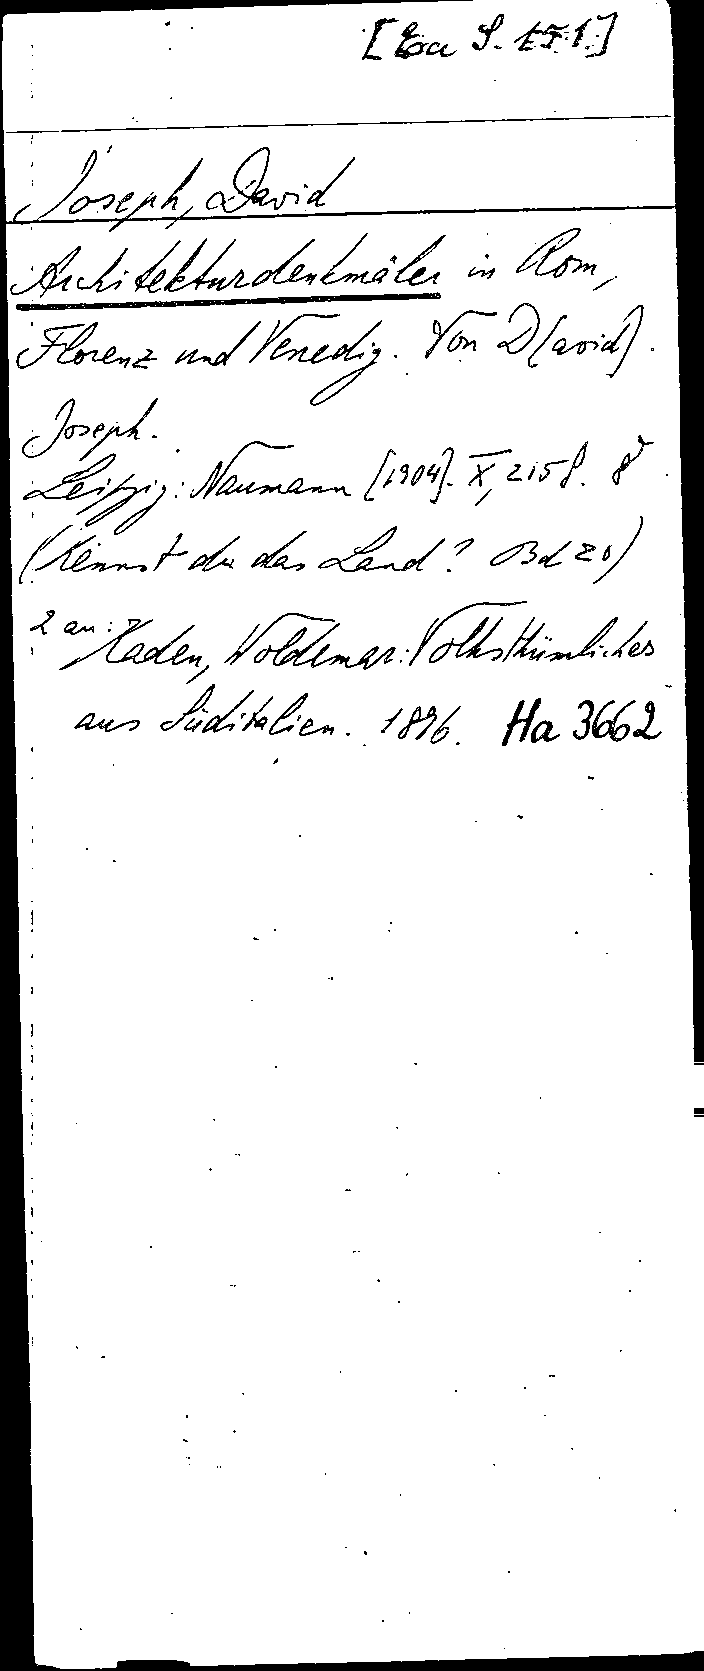 Joseph, David
Architekturdenkmäler in Rom,
Florenz und Venedig. Von D[avid].
Joseph.
Leipzig: Naumann [1904]. X, 215 S. 8°
(Kennst du das Land? Bd 20)
2 an: Kaden, Woldemar: Volksthümliches
aus Süditalien. 1896. Ha 3662